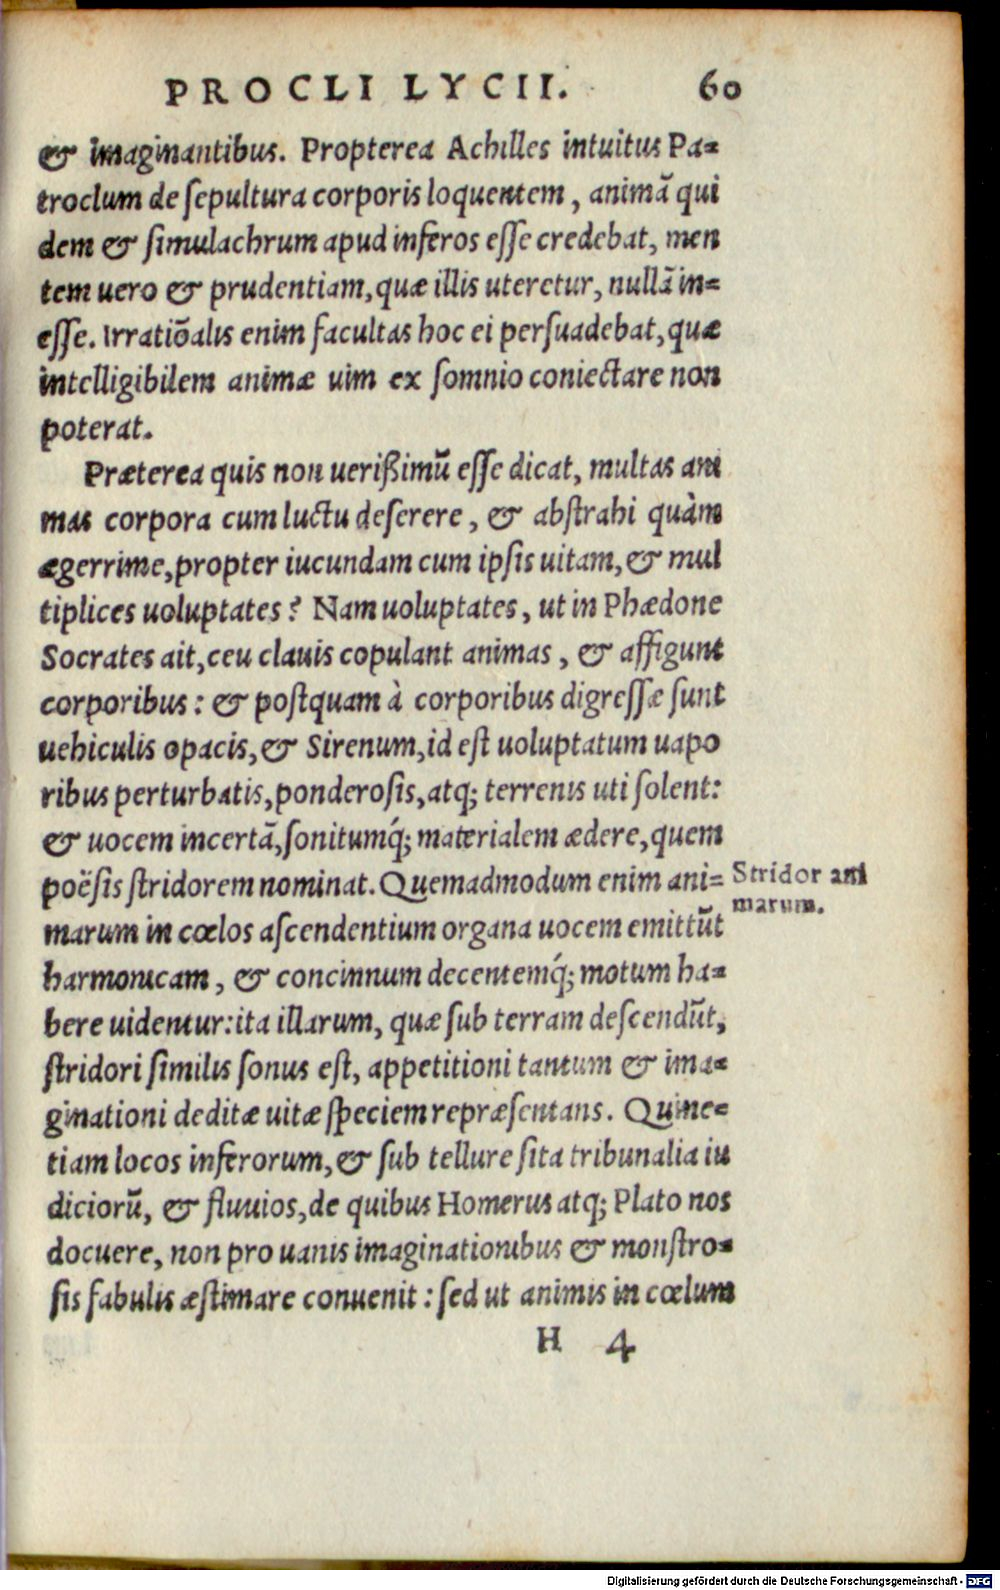 PROCLI LYCII. 60
& imaginantibus. Propterea Achilles intuitus Pa-
troclum de sepultura corporis loquentem, animã qui
dem & simulachrum apud inferos esse credebat, men
tem uero & prudentiam, quæ illis uteretur, nullã in-
esse. Irratiõalis enim facultas hoc ei persuadebat, quæ
intelligibilem animæ uim ex somnio coniectare non
poterat.
Præterea quis non uerißimũ esse dicat, multas ani
mas corpora cum luctu deserere, & abstrahi quàm
ægerrime, propter iucundam cum ipsis uitam, & mul
tiplices uoluptates? Nam uoluptates, ut in Phædone
Socrates ait, ceu clauis copulant animas, & affigunt
corporibus: & postquam à corporibus digressæ sunt
uehiculis opacis, & Sirenum, id est uoluptatum uapo
ribus perturbatis, ponderosis, atq; terrenis uti solent:
& uocem incertã, sonitumq́; materialem ædere, quem
poësis stridorem nominat. Quemadmodum enim ani-
Stridor ani
marum.
marum in cœlos ascendentium organa uocem emittũt
harmonicam, & concinnum decentemq́; motum ha-
bere uidentur: ita illarum, quæ sub terram descendũt,
stridori similis sonus est, appetitioni tantum & ima-
ginationi deditæ uitæ speciem repræsentans. Quine-
tiam locos inferorum, & sub tellure sita tribunalia iu
diciorũ, & fluuios, de quibus Homerus atq; Plato nos
docuere, non pro uanis imaginationibus & monstro-
sis fabulis æstimare conuenit: sed ut animis in cœlum
H 4
Digitalisierung gefördert durch die Deutsche Forschungsgemeinschaft - DFG